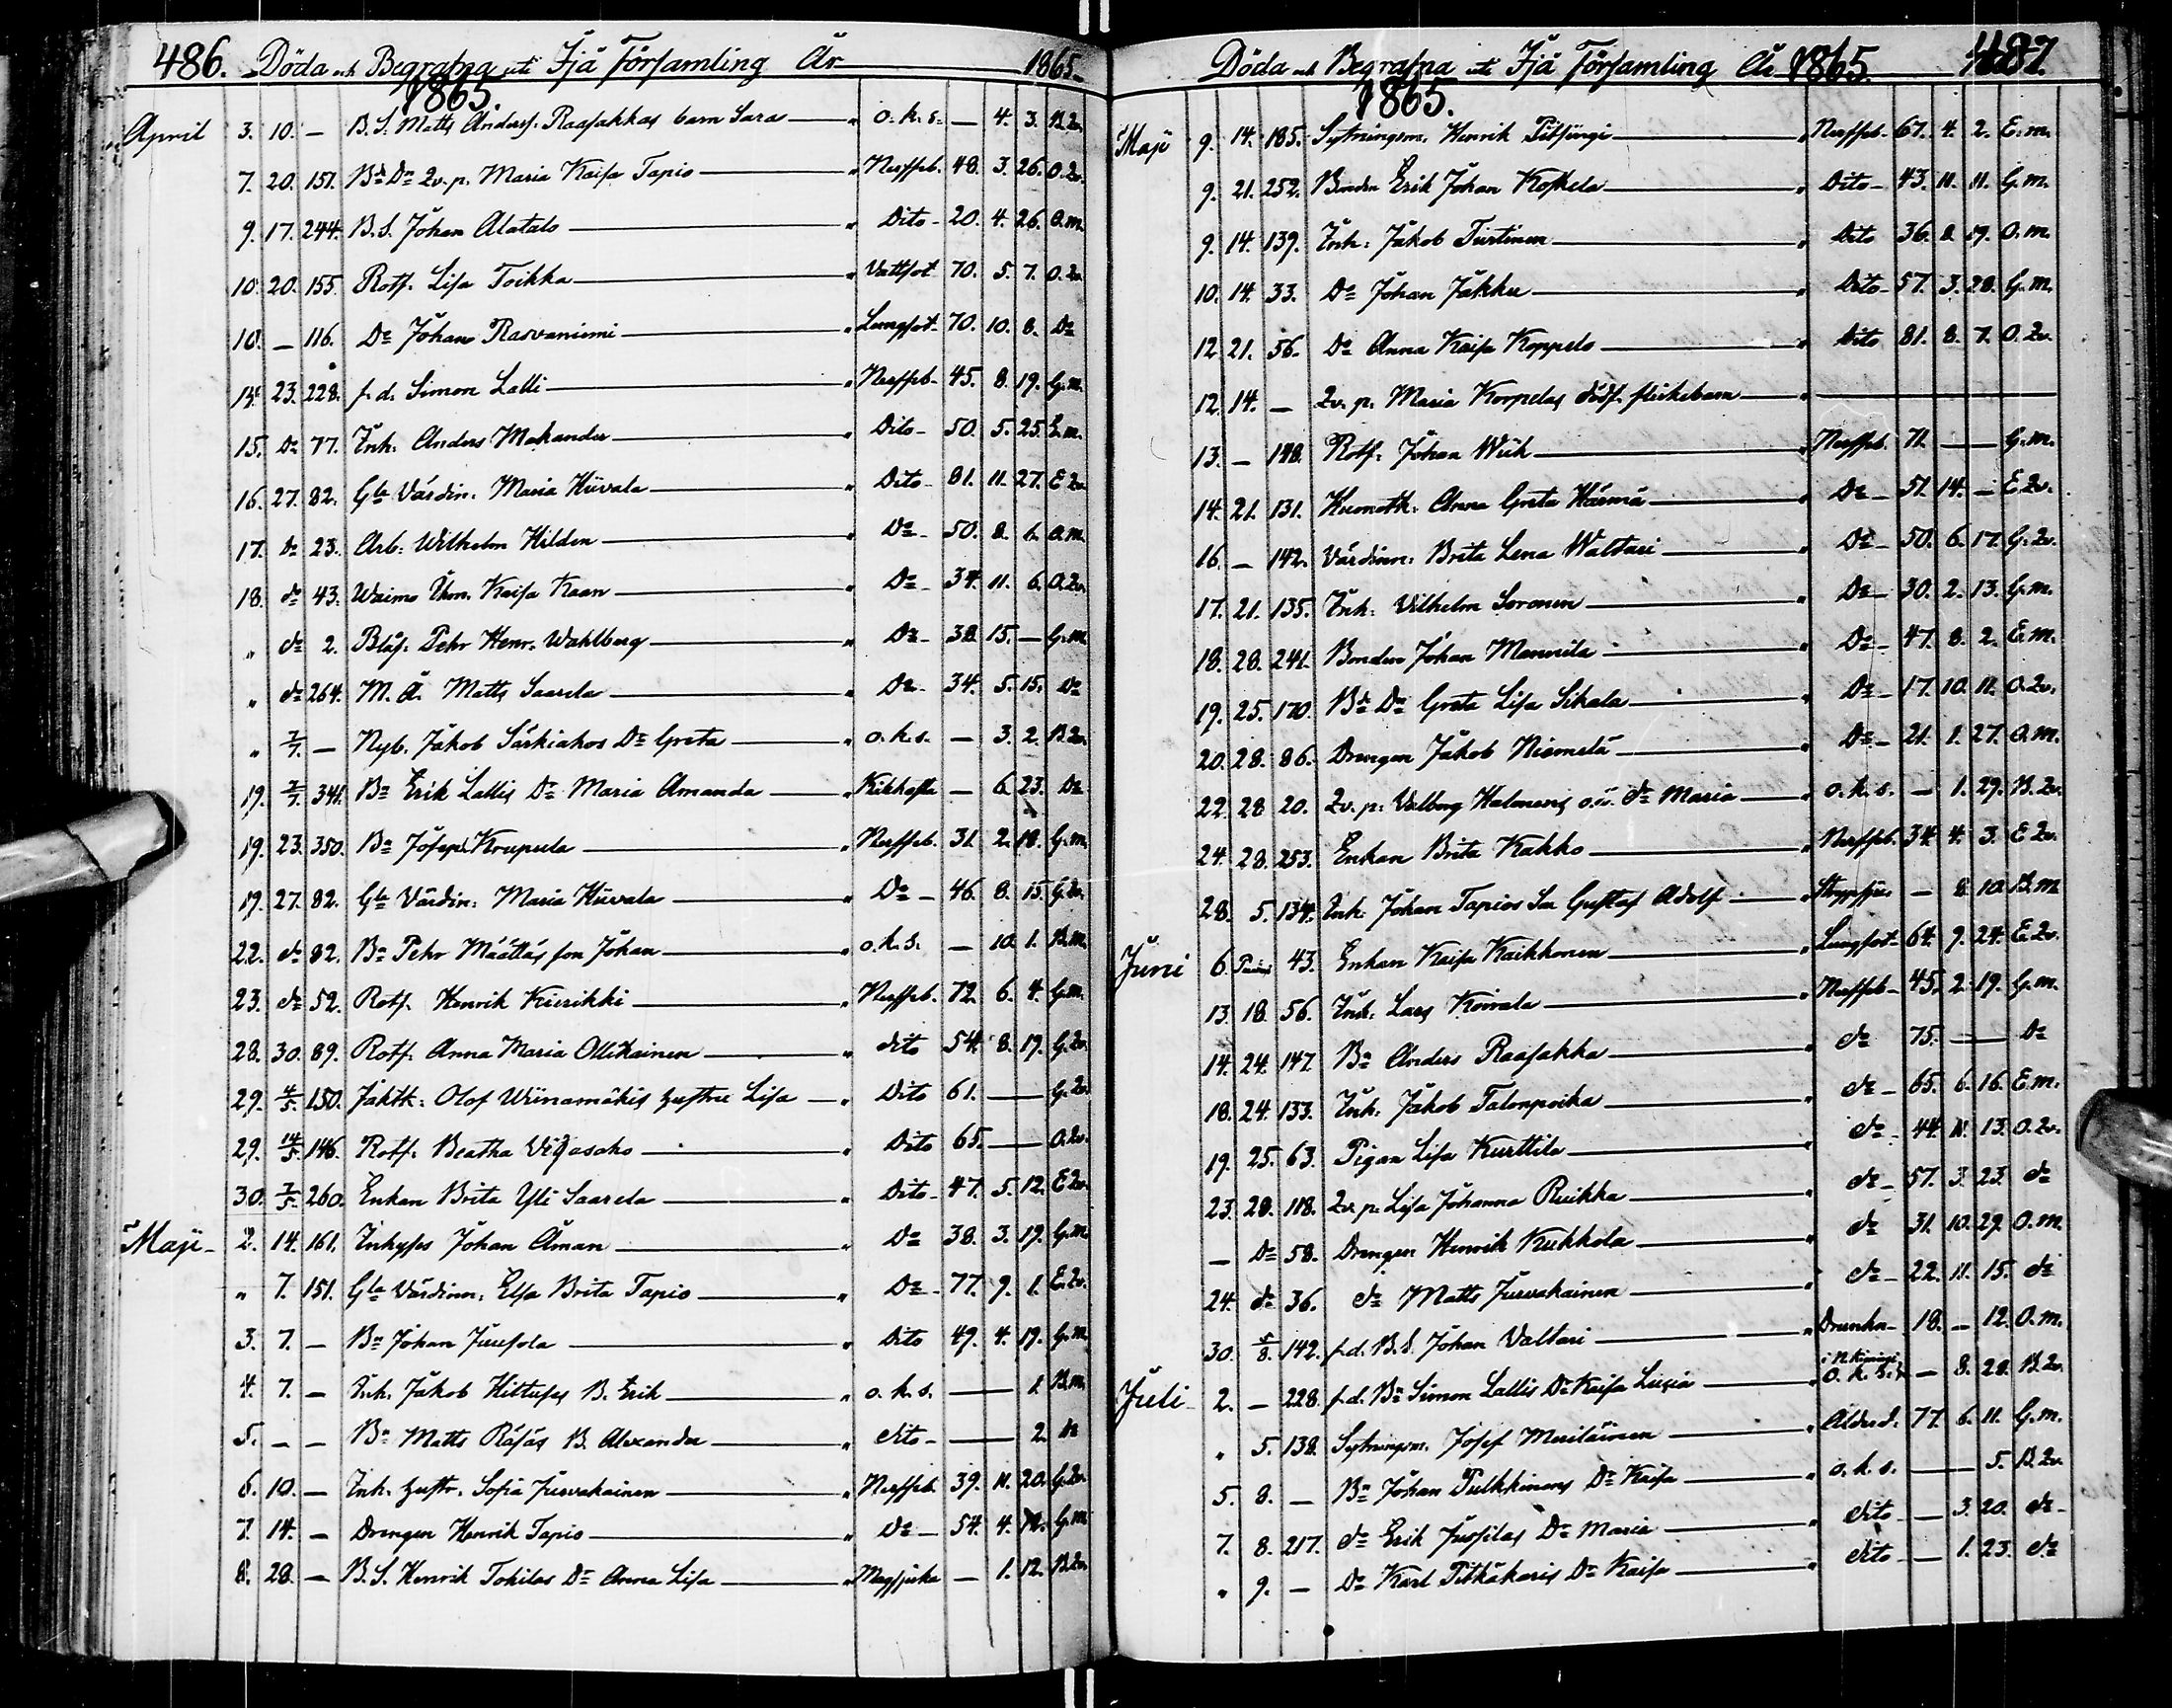 486. Döda och Begrafna uti Ijå Församling År 1865.
1865.
April 3. 10. — B. S. Matts Anders. Raasakkas barn Sara — " o. k. s. — 4. 3. B.Qv.
7. 20. 151. Bd Dr Qv. p. Maria Kaisa Tapio — " Nerffeb. 48. 3. 26. O.Qv.
9. 17. 244. B. S. Johan Alatalo — " Dito - 20. 4. 26. O.m.
10. 20. 155. Rotf. Lisa Toikka — " Vattsot 70. 5. 7. O.Qv.
10. — 116. Do Johan Rasvaniemi — " Lungsot 70. 10. 8. Do
14. 23. 228. f. d. Simon Lalli — " Nerffeb. 45. 8. 19. G.m.
15. Do 77. Inh. Anders Makander — " Dito - 50. 5. 25. E.m.
16. 27. 82. Gla Värdin. Maria Hiivala — " Dito - 81. 11. 27. E.Qv.
17. Do 23. Arb. Wilhelm Hilden — " Do - 50. 8. 1. O.m.
18. do 43. Kaisa Kaan — " Do - 34. 11. 6. O.Qv.
" do 2. Pehr Henr. Wahlberg — " Do - 38. 15. — G.m.
" do 264. M. Å. Matts Saarela — " Do - 34. 5. 15. Do
" 7/7. — Nyb. Jakob Särkiahos Dr Greta — " o. k. s. — 3. 2. B.Qv.
19. 7/7. 341. Bn Erik Lallis Dr Maria Amanda — " Kikhosta — 6. 23. Do
19. 23. 350. Bn Josep Krupula — " Nerffeb. 31. 2. 18. G.m.
19. 27. 82. Gla Värdin. Maria Hiivala — " Do - 46. 8. 15. G.Qv.
22. do 82. Bn Pehr Määttäs son Johan — " o. k. s. — 10. 1. B.m.
23. do 52. Rotf. Henrik Kurikki — " Nerffeb. 72. 6. 4. G.m.
28. 30. 89. Rotf. Anna Maria Ollikainen — " dito 54. 8. 19. G.Qv.
29. 4/5. 150. Jaktk. Olof Wiinamäkis hustru Lisa — " Dito 61. — G.Qv.
29. 14/5. 146. Rotf. Beatha — " Dito 65. — O.Qv.
30. 7/5. 260. Enkan Brita Yli Saarela — " Dito - 47. 5. 12. E.Qv.
Maji - 2. 14. 161. Inhyses Johan Åman — " Do 38. 3. 19. G.m.
" 7. 151. Gla Värdinn. Elsa Brita Tapio — " Do - 77. 9. 1. E.Qv.
3. 7. — Bn Johan Juusola — " Dito 49. 4. 19. G.m.
4. 7. — Inh. Jakob B. Erik — " o. k. s. — 1. B.m.
5. — — Bn Matts B. Alexander — " dito - — 2. Do
6. 10. — Inh. hustr. Sofia Jurvakainen — " Nerffeb. 39. 11. 20. G.Qv.
7. 14. — Drengen Henrik Tapio — " Do - 54. 4. G.m.
8. 28. — B. S. Henrik Tokilas Dr Anna Lisa — " Magsjuka — 1. 12. B.Qv.
Döda och Begrafna uti Ijå Församling År 1865. 487.
1865.
Maji 9. 14. 185. Sytningsm. Henrik — " Nerffeb. 67. 4. 2. E.m.
9. 21. 252. Bonden Erik Johan Koskela — " Dito - 43. 11. 11. G.m.
9. 14. 139. Inh. Jakob Turtinen — " Dito 36. 8. 19. O.m.
10. 14. 33. Do Johan Jakku — " Dito - 57. 3. 28. G.m.
12. 21. 56. Do Anna Kaisa Koppelo — " Dito 81. 8. 7. O.Qv.
12. 14. — Qv. p. Maria Korpelas dödf. flickebarn — "
13. — 148. Rotf. Johan Wiik — " Nerffeb. 71. — G.m.
14. 21. 131. Anna Greta Härmä — " Do - 51. 14. — E.Qv.
16. — 142. Värdinn. Brita Lena Waltari — " Do - 50. 6. 17. G.Qv.
17. 21. 135. Inh. Vilhelm Soronen — " Do - 30. 2. 13. G.m.
18. 28. 241. Bonden Johan Mannila — " Do - 47. 8. 2. E.m.
19. 25. 170. Bd Dr Greta Lisa Sikala — " Do - 17. 10. 11. O.Qv.
20. 28. 86. Drengen Jakob Niemelä — " Do - 21. 1. 27. O.m.
22. 28 20. Qv. p. Valborg Halmens o.ä. dr Maria — " o. k. s. — 1. 29. B.Qv.
24. 28. 253. Enkan Brita Kakko — " Nerffeb. 34. 4. 3. E.Qv.
28. 5. 134. Inh. Johan Tapios Son Gustaf Adolf — " — 8. 10. B.m.
Juni 6. 43. Enkan Kaisa Kaikkonen — " Lungsot 64. 9. 24. E.Qv.
13. 18. 56. Inh. Lars Koivala — " Nerffeb - 45. 2. 19. G.m.
14. 24. 147. Bn Anders Raasakka — " do 75. — Do
18. 24. 133. Inh. Jakob Talonpoika — " do - 65. 6. 16. E.m.
19. 25. 63. Pigan Lisa Kurttila — " do - 44. 11. 13. O.Qv.
23. 28. 118. Qv. p. Lisa Johanna Ruikka — " do - 57. 3. 23. do
— Do 58. Drengen Henrik Kukkola — " do 31. 10. 29. O.m.
24. do 36. do Matts Jurvakainen — " do - 22. 11. 15. do
30. 5/8. 142. f. d. B. S. Johan Valtari — " Drunkn - 18. — 12. O.m.
Juli - 2. — 228. f. d. Bn Simon Lallis Dr Kaisa Lucia — " o. k. s. — 8. 28. B.Qv.
" 5. 138. Sytningsm. Josef Meriläinen — " Ålderd. 77. 6. 11. G.m.
5. 8. — Bn Johan Pulkkinens Dr Kaisa — " o. k. s. — 5. B.Qv.
7. 8. 217. do Erik Dr Maria — " dito - — 3. 20. do -
" 9. — Do Karl Pitkäkaris Dr Kaisa — " dito — 1. 23. do